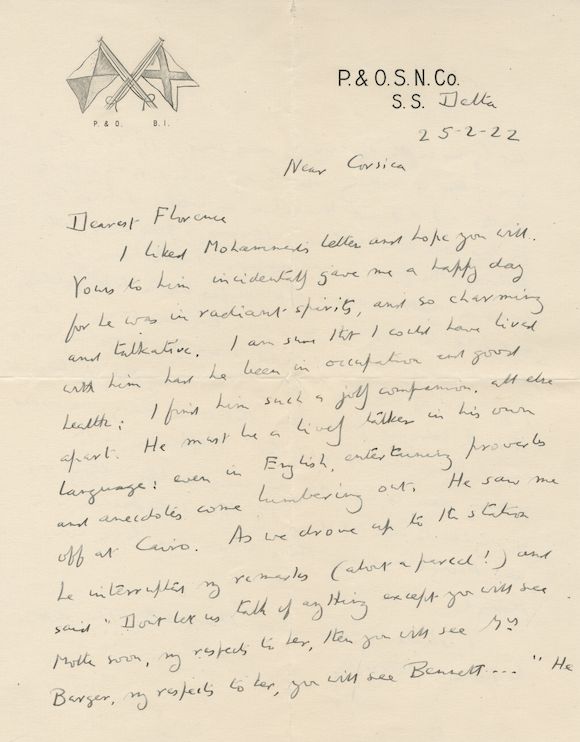 P. & O.    B. I.
P. & O. S. N. Co.
S. S. Delta
25-2-22
Near Corsica
Dearest Florence
I liked Mohammed's letter and hope you will.
Yours to him incidentally gave me a happy day
for he was in radiant spirits, and so charming
and talkative. I am sure that I could have lived
with him had he been in occupation and good
health: I find him such a jolly companion, all else
apart. He must be a lively talker in his own
language: even in English, entertaining proverbs
and anecdotes come lumbering out. He saw me
off at Cairo. As we drove up to the station
he interrupted my remarks (about a parcel!) and
said "Don't let us talk of anything except you will see
Mother soon, my respects to her, then you will see Mrs
Barger, my respects to her, you will see Bennett...." He